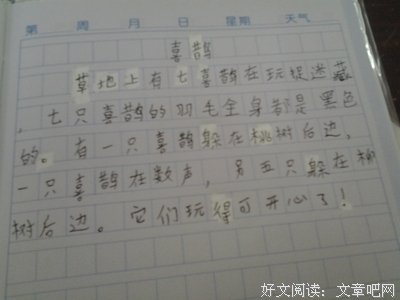 第 周 月 日 星期 天气
喜鹊
草地上有七喜鹊在玩捉迷藏
，七只喜鹊的羽毛全身都是黑色
的。有一只喜鹊躲在桃树后边，
一只喜鹊在数声，另五只躲在柳
树后边。它们玩得可开心了！
好文阅读：文章吧网